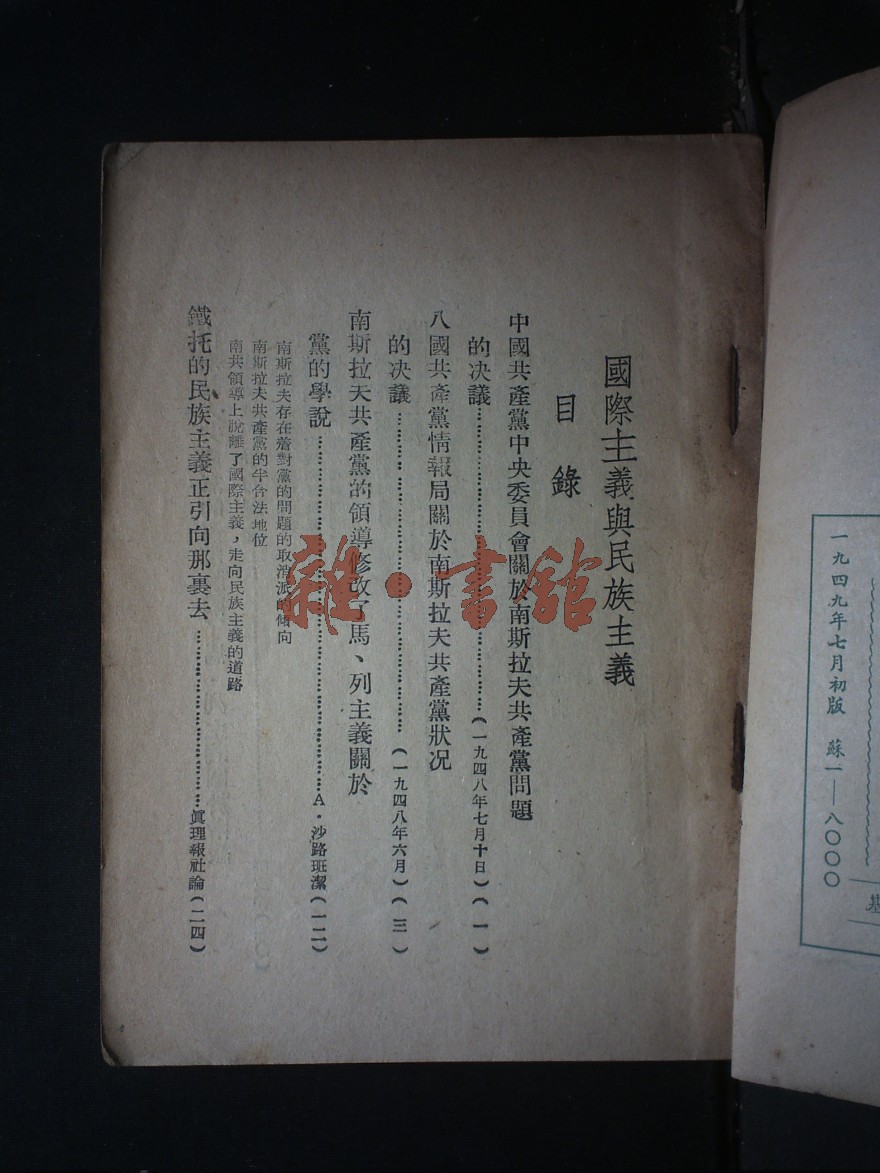 國際主義與民族主義
目錄
中國共產黨中央委員會關於南斯拉夫共產黨問題
的决議……(一九四八年七月十日)(一)
八國共產黨情報局關於南斯拉夫共產黨狀况
的决議……(一九四八年六月)(三)
南斯拉天共產黨的領導修改了馬、列主義關於
黨的學說……A·沙路班潔(一二)
南斯拉夫存在着對黨的問題的取消派的傾向
南斯拉夫共產黨的半合法地位
南共領導上脫離了國際主義，走向民族主義的道路
鐵托的民族主義正引向那裏去……眞理報社論(二四)
一九四九年七月初版 蘇一—八〇〇〇
雜·書舘